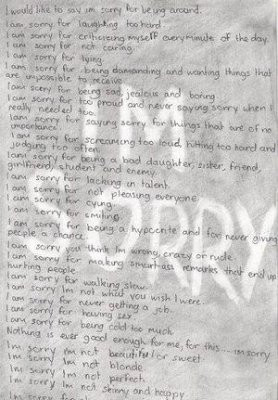 I would like to say im sorry for being around.
I am sorry for laughing too hard
I am sorry for criticizing myself every minute of the day.
I am sorry for not caring.
I am sorry for lying.
I am sorry for being demanding and wanting things that
are impossible to receive.
I am sorry for being sad, jealous and boring.
I am sorry for too proud and never saying sorry when I
really needed too.
I am sorry for saying sorry for things that are of no
importance.
I am sorry for screaming too loud, hitting too hard and
judging too often.
I am sorry for being a bad daughter, sister, friend,
girlfriend, student and enemy.
I am sorry for lacking in talent.
I am sorry for not pleasing everyone.
I am sorry for crying.
I am sorry for smiling.
I am sorry for being a hypocrite and for never giving
people a chance.
I am sorry you think Im wrong, crazy or rude.
I am sorry for making smartass remarks that end up
hurting people
I am sorry for walking slow.
I am sorry Im not what you wish I were.
I am sorry for never getting a job.
I am sorry for having sex
I am sorry for being cold too much.
Nothing is ever good enough for me, for this... im sorry
Im sorry Im not beautiful or sweet.
Im sorry Im not blonde
Im sorry Im not perfect.
Im sorry Im not skinny and happy.
Im sorry for
I'M
SORRY